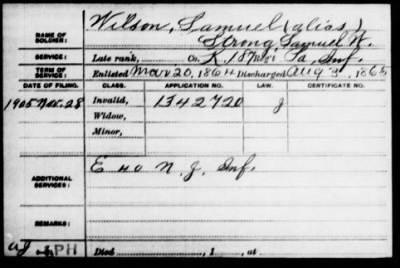 NAME OF SOLDIER: Wilson, Samuel (alias)
Strong, Samuel W.
SERVICE: Late rank, Co. K, 187 Reg't Pa. Inf.
TERM OF SERVICE: Enlisted Mar 20, 1864 Discharged Aug 3, 1865
DATE OF FILING. CLASS. APPLICATION NO. LAW. CERTIFICATE NO.
1905 Nov. 28 Invalid, 1342720 J
Widow,
Minor,
ADDITIONAL SERVICES: E 40 N. J. Inf.
REMARKS:
PH Died , 1 , at